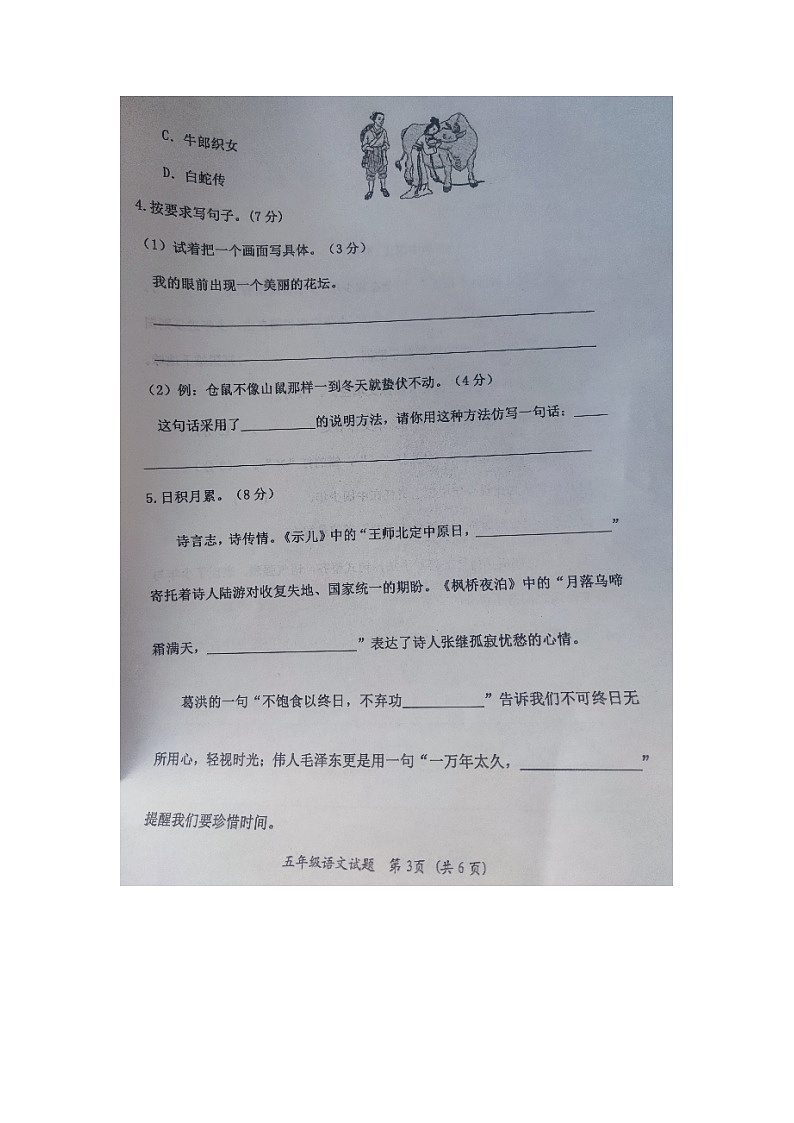 C．牛郎织女
D．白蛇传
4.按要求写句子。(7分)
（1）试着把一个画面写具体。（3分）
我的眼前出现一个美丽的花坛。
（2）例：仓鼠不像山鼠那样一到冬天就蛰伏不动。（4分）
这句话采用了__________的说明方法，请你用这种方法仿写一句话：____
5.日积月累。（8分）
诗言志，诗传情。《示儿》中的“王师北定中原日，__________________”
寄托着诗人陆游对收复失地、国家统一的期盼。《枫桥夜泊》中的“月落乌啼
霜满天，____________________”表达了诗人张继孤寂忧愁的心情。
葛洪的一句“不饱食以终日，不弃功___________”告诉我们不可终日无
所用心，轻视时光；伟人毛泽东更是用一句“一万年太久，________________”
提醒我们要珍惜时间。
五年级语文试题 第3页（共6页）